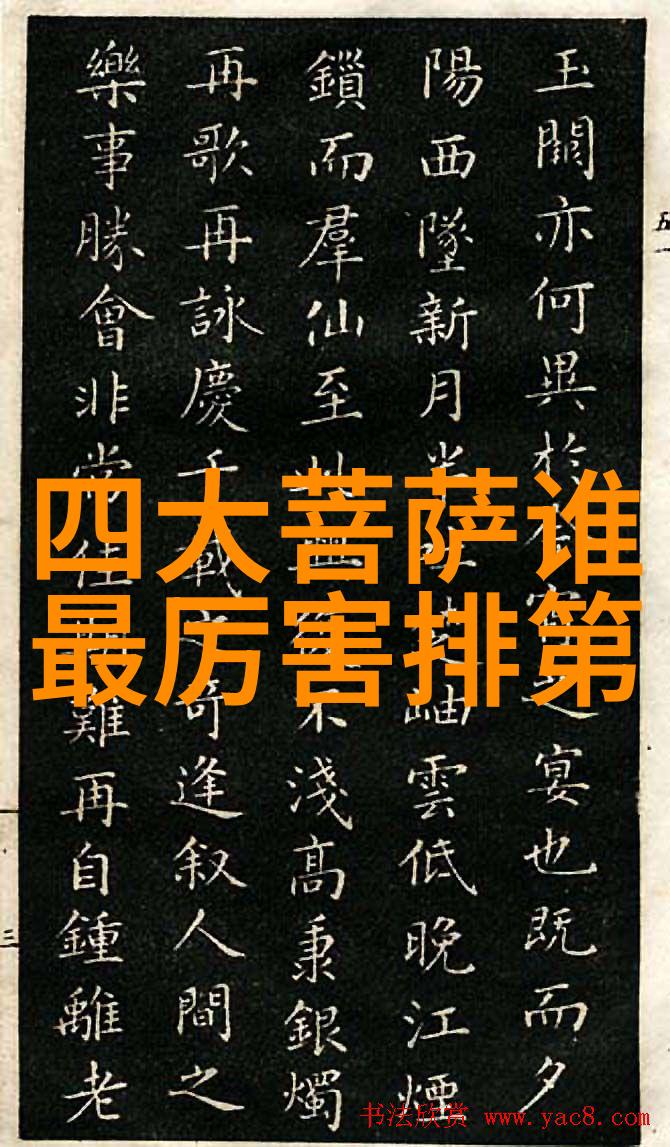 玉關亦何異於之宴也既而夕
陽西墜新月半芝岫雲低晚江煙
鎖而羣仙至此興復不淺高秉銀燭
再歌再詠慶千載之奇逢叙人間之
樂事勝會非常佳期難再自鍾離老
四大菩萨谁
最厉害排第
五
三
书法欣赏 www.yac8.com